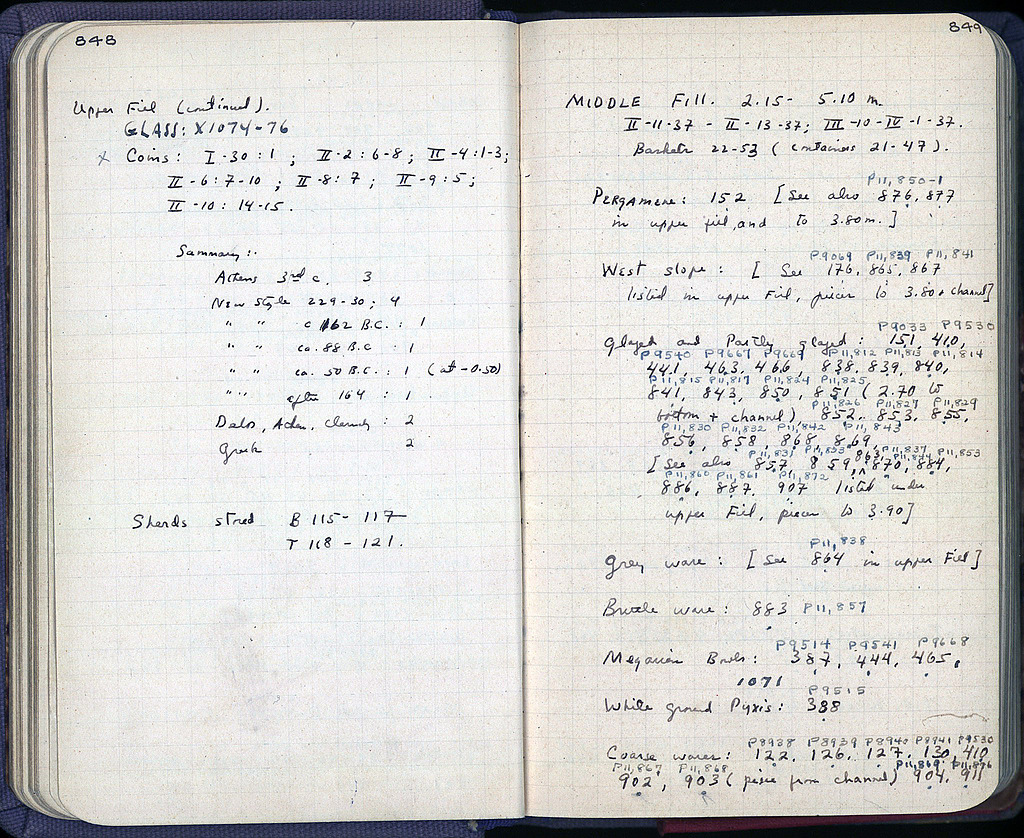 848
Upper Fill (continued).
GLASS: X1074-76
x Coins: I-30:1 ; II-2:6-8; II-4:1-3;
II-6:7-10 ; II-8:7 ; II-9:5;
II-10:14-15.
Summary:
Athens 3rd c. 3
New Style 229-30; 4
" " c 162 B.C.: 1
" " ca. 88 B.C.: 1
" " ca. 50 B.C.: 1 (at -0.50)
" " after 164 : 1
Delos, Athen. : 2
Greek 2
Sherds stored B 115-117
T 118-121.
849
MIDDLE Fill. 2.15- 5.10 m.
II-11-37 - II-13-37; III-10-IV-1-37.
Baskets 22-53 (containers 21-47).
P11,850-1
PERGAMENE: 152 [See also 876, 877
in upper fill, and to 3.80m.]
P9069 P11,839 P11,841
West slope: [See 176, 865, 867
listed in upper Fill, pieces to 3.80 + channel]
P9033 P9530
Glazed and Partly glazed: 151, 410,
P9540 P9667 P9669 P11,812 P11,813 P11,814
441, 463, 466, 838, 839, 840,
P11,815 P11,817 P11,824 P11,825
841, 843, 850, 851 (2.70 to
P11,826 P11,827 P11,829
bottom + channel), 852, 853, 855,
P11,830 P11,832 P11,842 P11,843
856, 858, 868, 869,
P11,831 P11,833 P11,837 P11,844 P11,853
[See also 857, 859, 863, 870, 884,
P11,860 P11,861 P11,872
886, 887, 907 listed under
upper Fill, pieces to 3.90]
P11,838
Grey ware: [See 864 in upper Fill]
Brittle ware: 883 P11,857
P9514 P9541 P9668
Megarian Bowls: 387, 444, 465,
1071
P9515
White ground Pyxis: 388
P8938 P8939 P8940 P8941 P9530
Coarse wares: 122, 126, 127, 130, 410
P11,867 P11,868 P11,869 P11,876
902, 903 (piece from channel) 904, 911